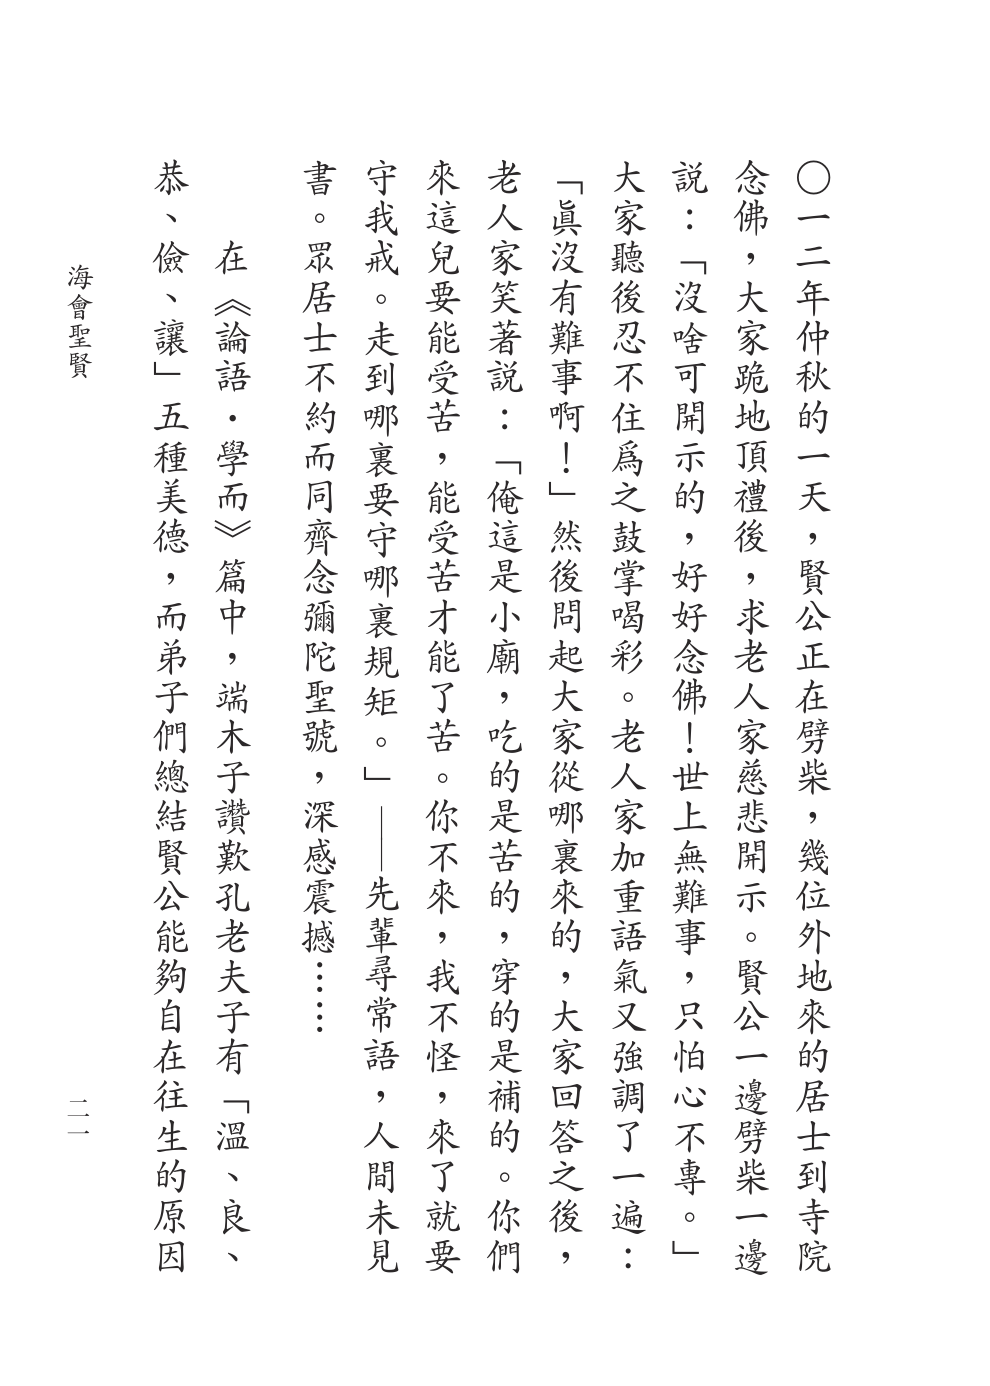 〇一二年仲秋的一天，賢公正在劈柴，幾位外地來的居士到寺院
念佛，大家跪地頂禮後，求老人家慈悲開示。賢公一邊劈柴一邊
説：「沒啥可開示的，好好念佛！世上無難事，只怕心不專。」
大家聽後忍不住爲之鼓掌喝彩。老人家加重語氣又強調了一遍：
「眞沒有難事啊！」然後問起大家從哪裏來的，大家回答之後，
老人家笑著説：「俺這是小廟，吃的是苦的，穿的是補的。你們
來這兒要能受苦，能受苦才能了苦。你不來，我不怪，來了就要
守我戒。走到哪裏要守哪裏規矩。」——先輩尋常語，人間未見
書。眾居士不約而同齊念彌陀聖號，深感震撼……
在《論語·學而》篇中，端木子讚歎孔老夫子有「溫、良、
恭、儉、讓」五種美德，而弟子們總結賢公能夠自在往生的原因
海會聖賢
二一